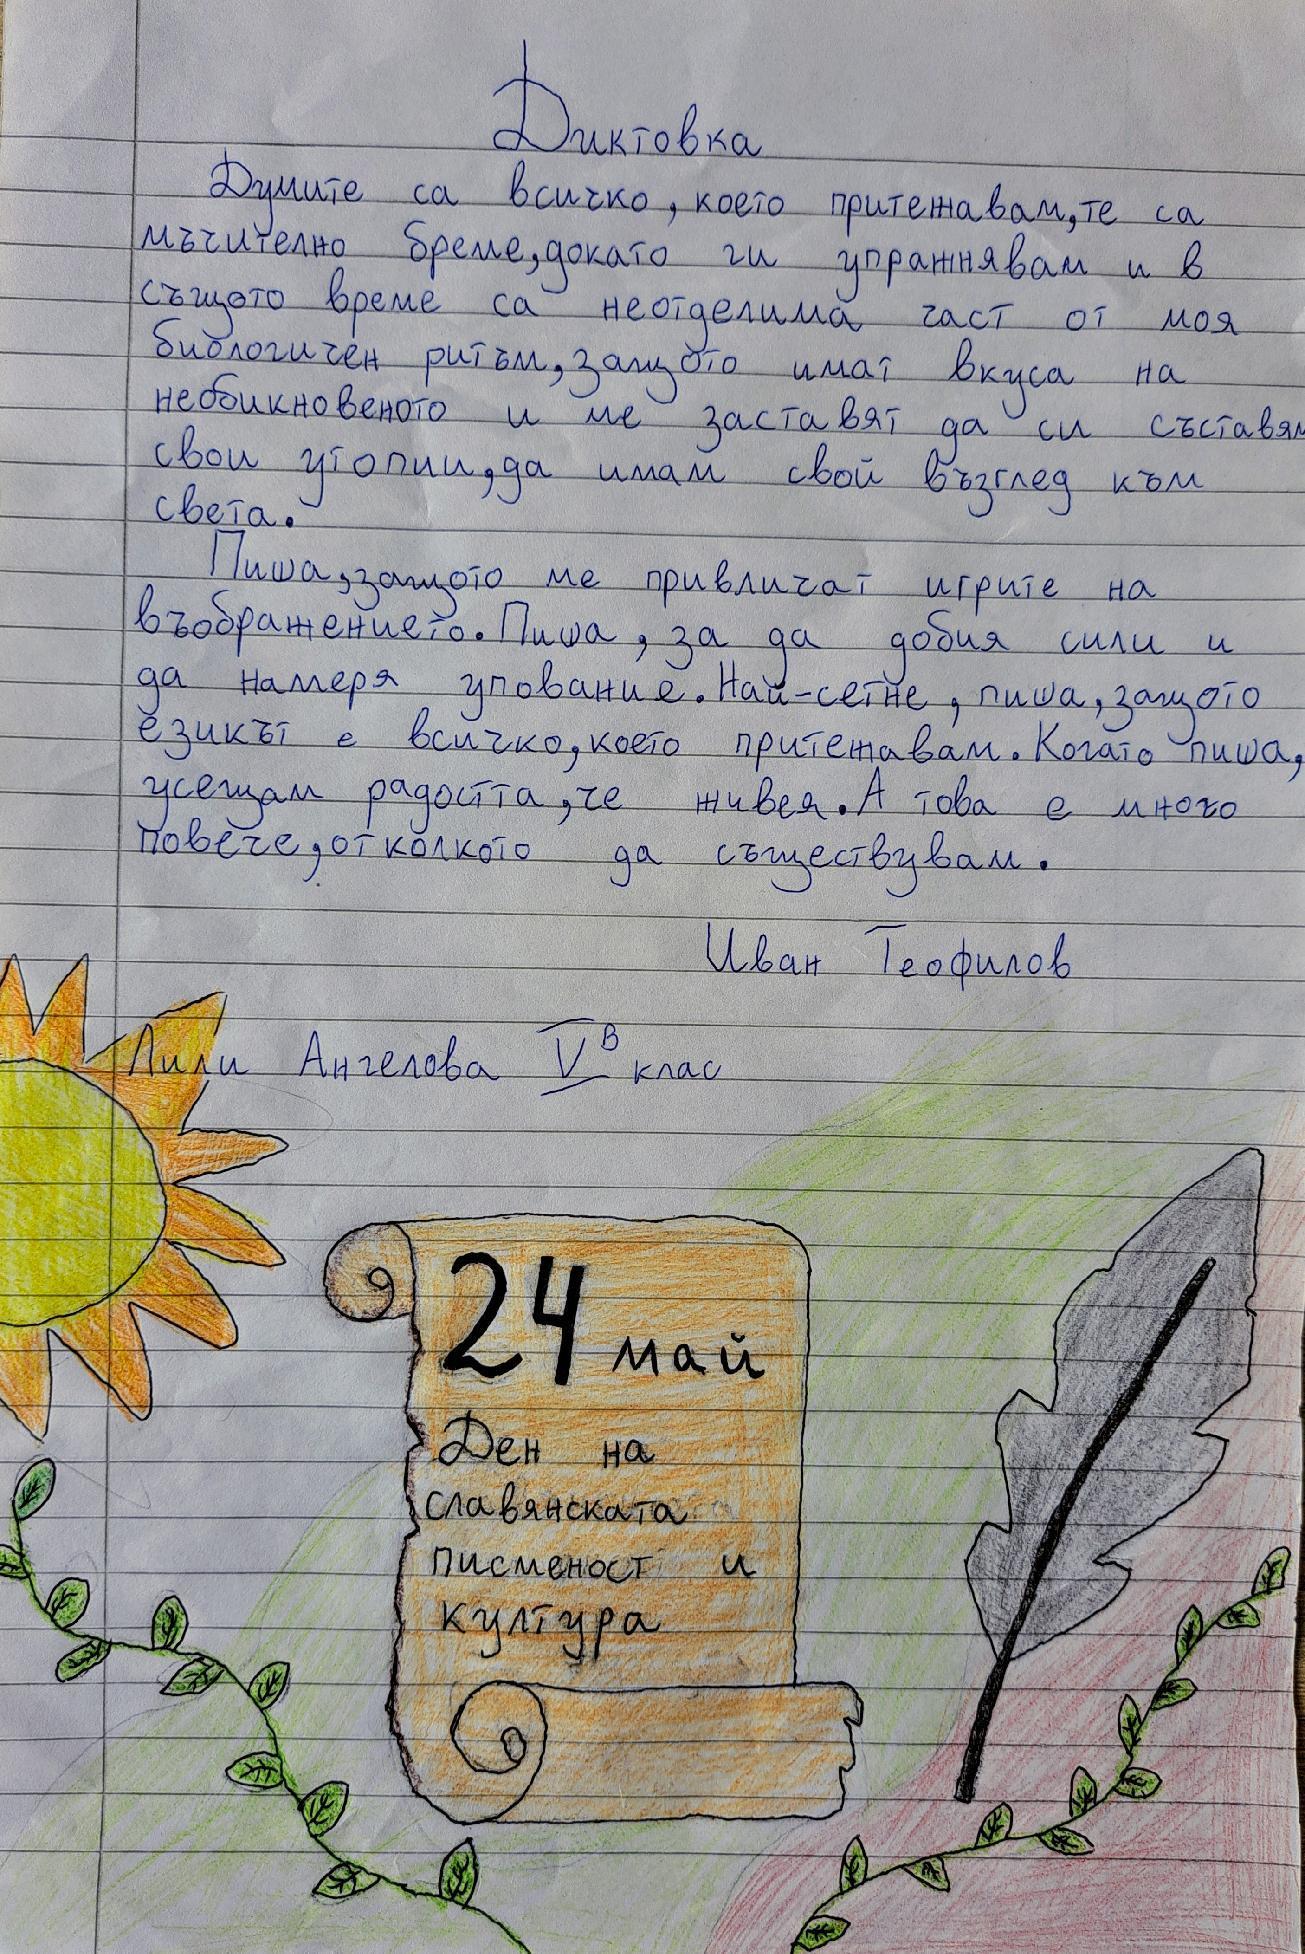 Диктовка
Думите са всичко, което притежавам, те са
мъчително бреме, докато ги упражнявам и в
същото време са неотделима част от моя
биологичен ритъм, защото имат вкуса на
необикновеното и ме заставят да си съставям
свои утопии, да имам свой възглед към
света.
Пиша, защото ме привличат игрите на
въображението. Пиша, за да добия сили и
да намеря упование. Най-сетне, пиша, защото
езикът е всичко, което притежавам. Когато пиша,
усещам радостта, че живея. А това е много
повече, отколкото да съществувам.
Иван Теофилов
Лили Ангелова V В клас
24 май
Ден на
славянската
писменост и
култура